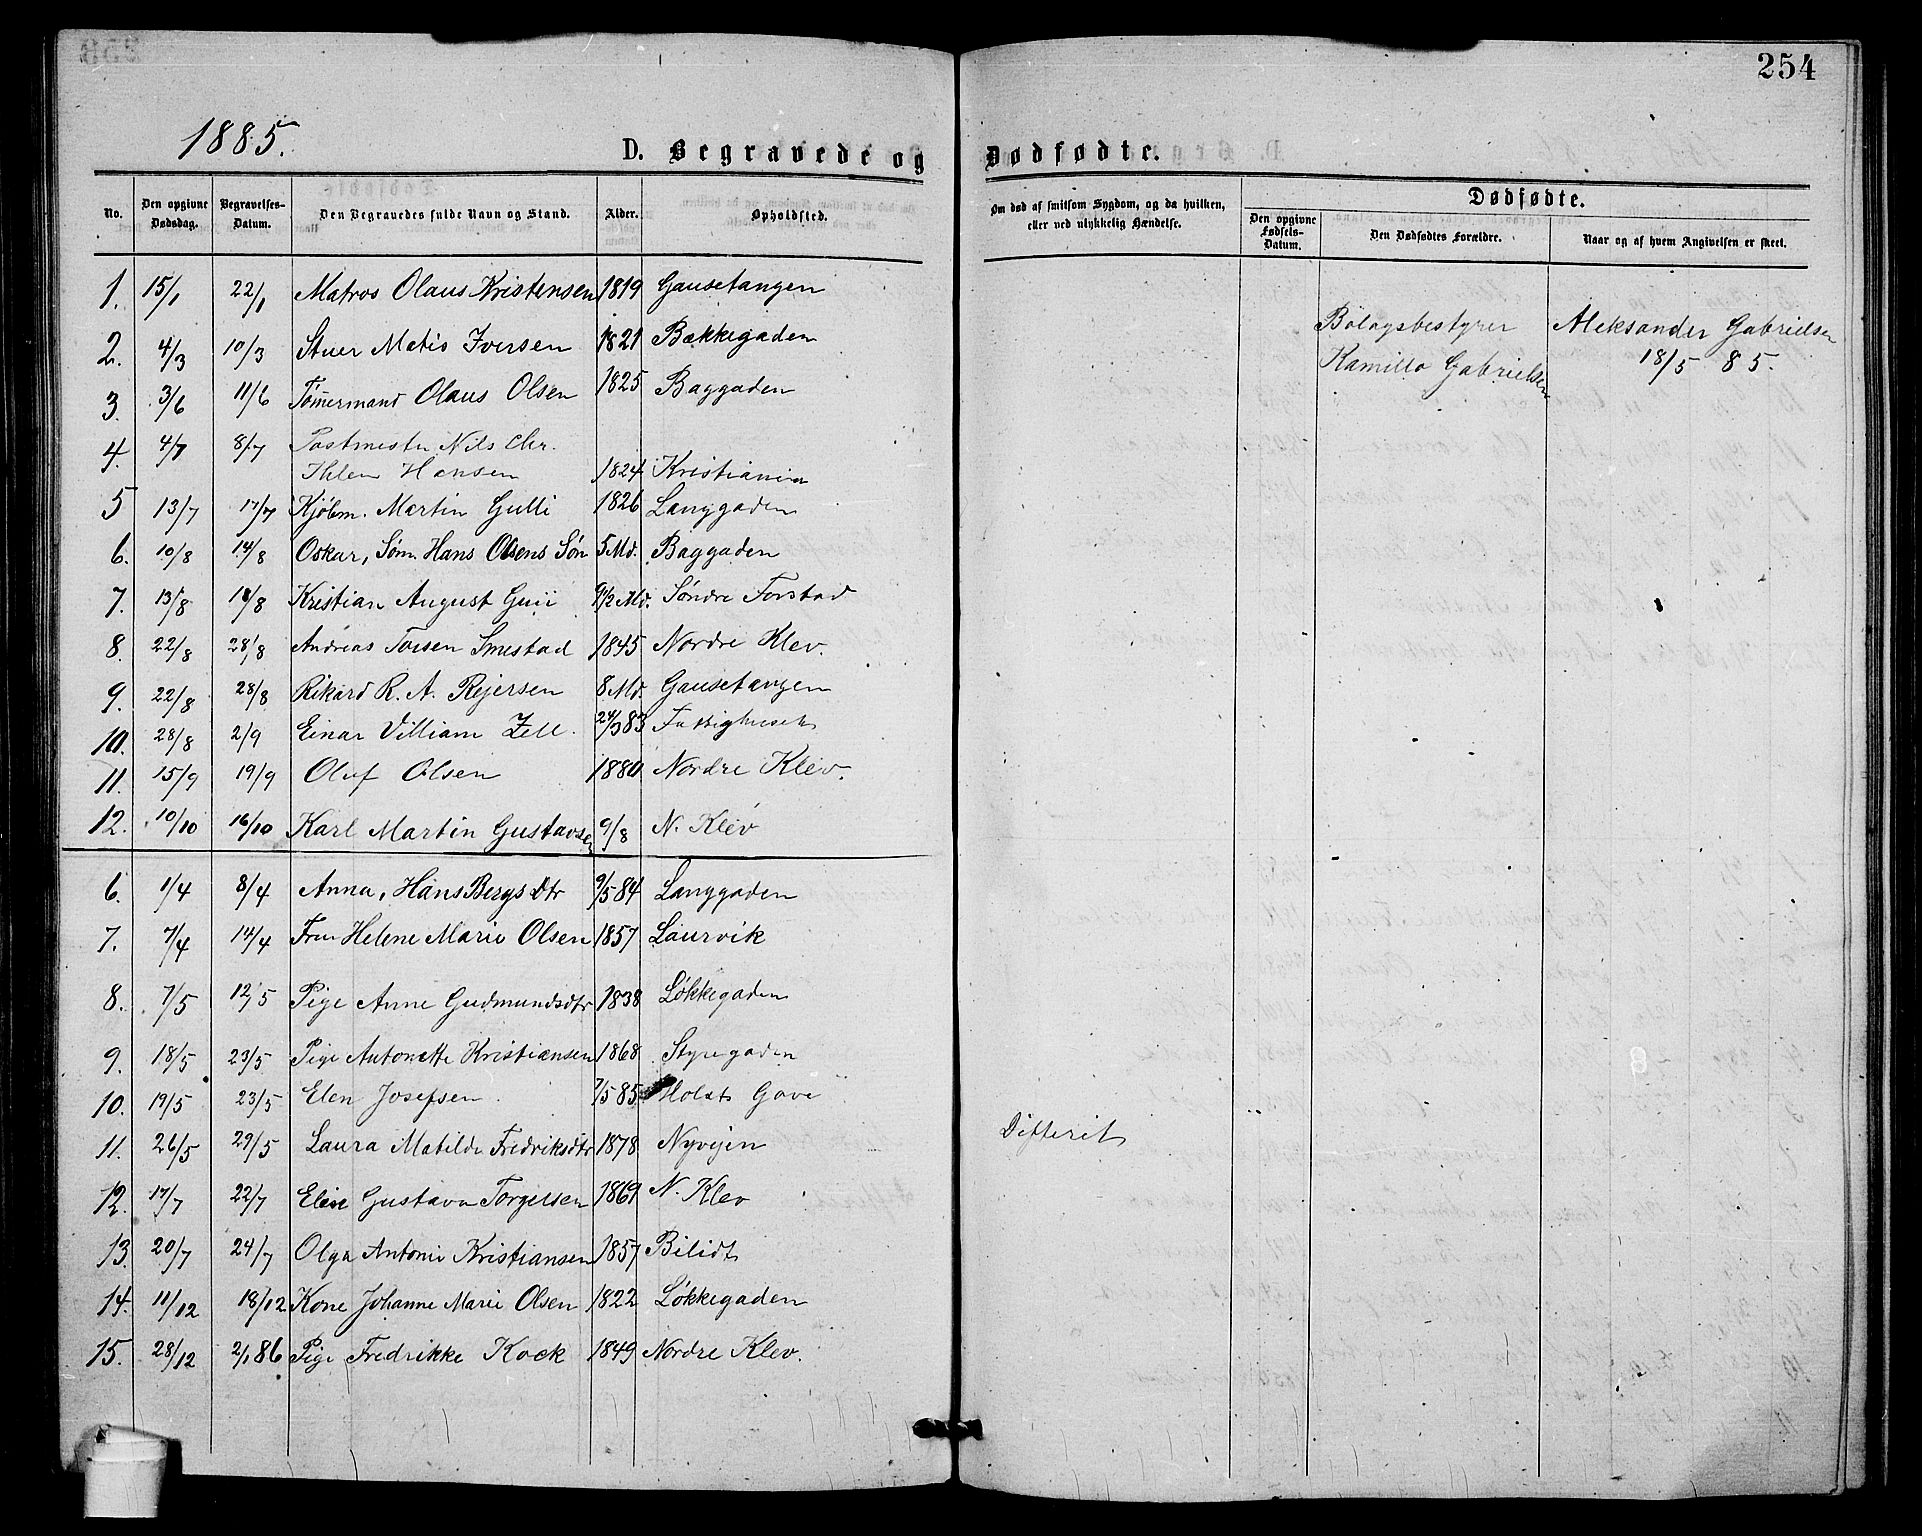 254
1885.
D. Begravede og Dødfødte.
No. Den opgivne Dødsdag. Begravelses-Datum. Den Begravedes fulde Navn og Stand. Alder. Opholdsted. Om død af smitsom Sygdom, og da hvilken, eller ved ulykkelig Hændelse. Dødfødte. Den opgivne Fødsels-Datum. Den Dødfødtes Forældre. Naar og af hvem Angivelsen er skeet.
1. 15/1 22/1 Matros Olaus Kristensen 1819 Gausetangen
Bolagsbestyrer Aleksander Gabrielsen
2. 4/3 10/3 Stuer Matis Iversen 1821 Bækkegaden
Kamillo Gabrielsen 18/5 85.
3. 3/6 11/6 Tømmermand Olaus Olsen 1825 Baggaden
4. 4/7 8/7 Postmester Nils Chr.
Ihlen Hansen 1824 Kristiania
5 13/7 17/7 Kjøbm. Martin Gulli 1826 Langgaden
6. 10/8 14/8 Oskar, Søm. Hans Olsens Søn 5 Md. Baggaden
7. 13/8 18/8 Kristian August 9 1/2 Md. Søndre Forstad
8. 22/8 28/8 Andreas Torsen Smestad 1845 Nordre Klev.
9. 22/8 28/8 Rikard R. A. Rejersen 8 Md. Gausetangen
10. 28/8 2/9 Einar Villiam Zell. 24/3 83 Fattighuset
11. 15/9 19/9 Oluf Olsen 1880 Nordre Klev.
12. 10/10 16/10 Karl Martin Gustavsen 9/8 N. Klev
6. 1/4 8/4 Anna, Hans Bergs Dtr 9/5 84 Langgaden
7. 7/4 14/4 Fru Helene Marie Olsen 1857 Laurvik
8. 7/5 12/5 Pige Anne Gudmundsdtr 1838 Løkkegaden
9. 18/5 23/5 Pige Antonette Kristiansen 1868 Styregaden
10. 19/5 23/5 Elen Josefsen. 7/5 85 Holsts Gave
11. 26/5 29/5 Laura Matilde Fredriksdtr 1878 Nyvejen Difterit
12. 17/7 22/7 Elise Gustava Torgersen 1869 N. Klev
13. 20/7 24/7 Olga Antonie Kristiansen 1857 Bilidt
14. 11/12 18/12 Kone Johanne Marie Olsen 1822 Løkkegaden
15. 28/12 2/1 86 Pige Fredrikke Kock 1849 Nordre Klev.